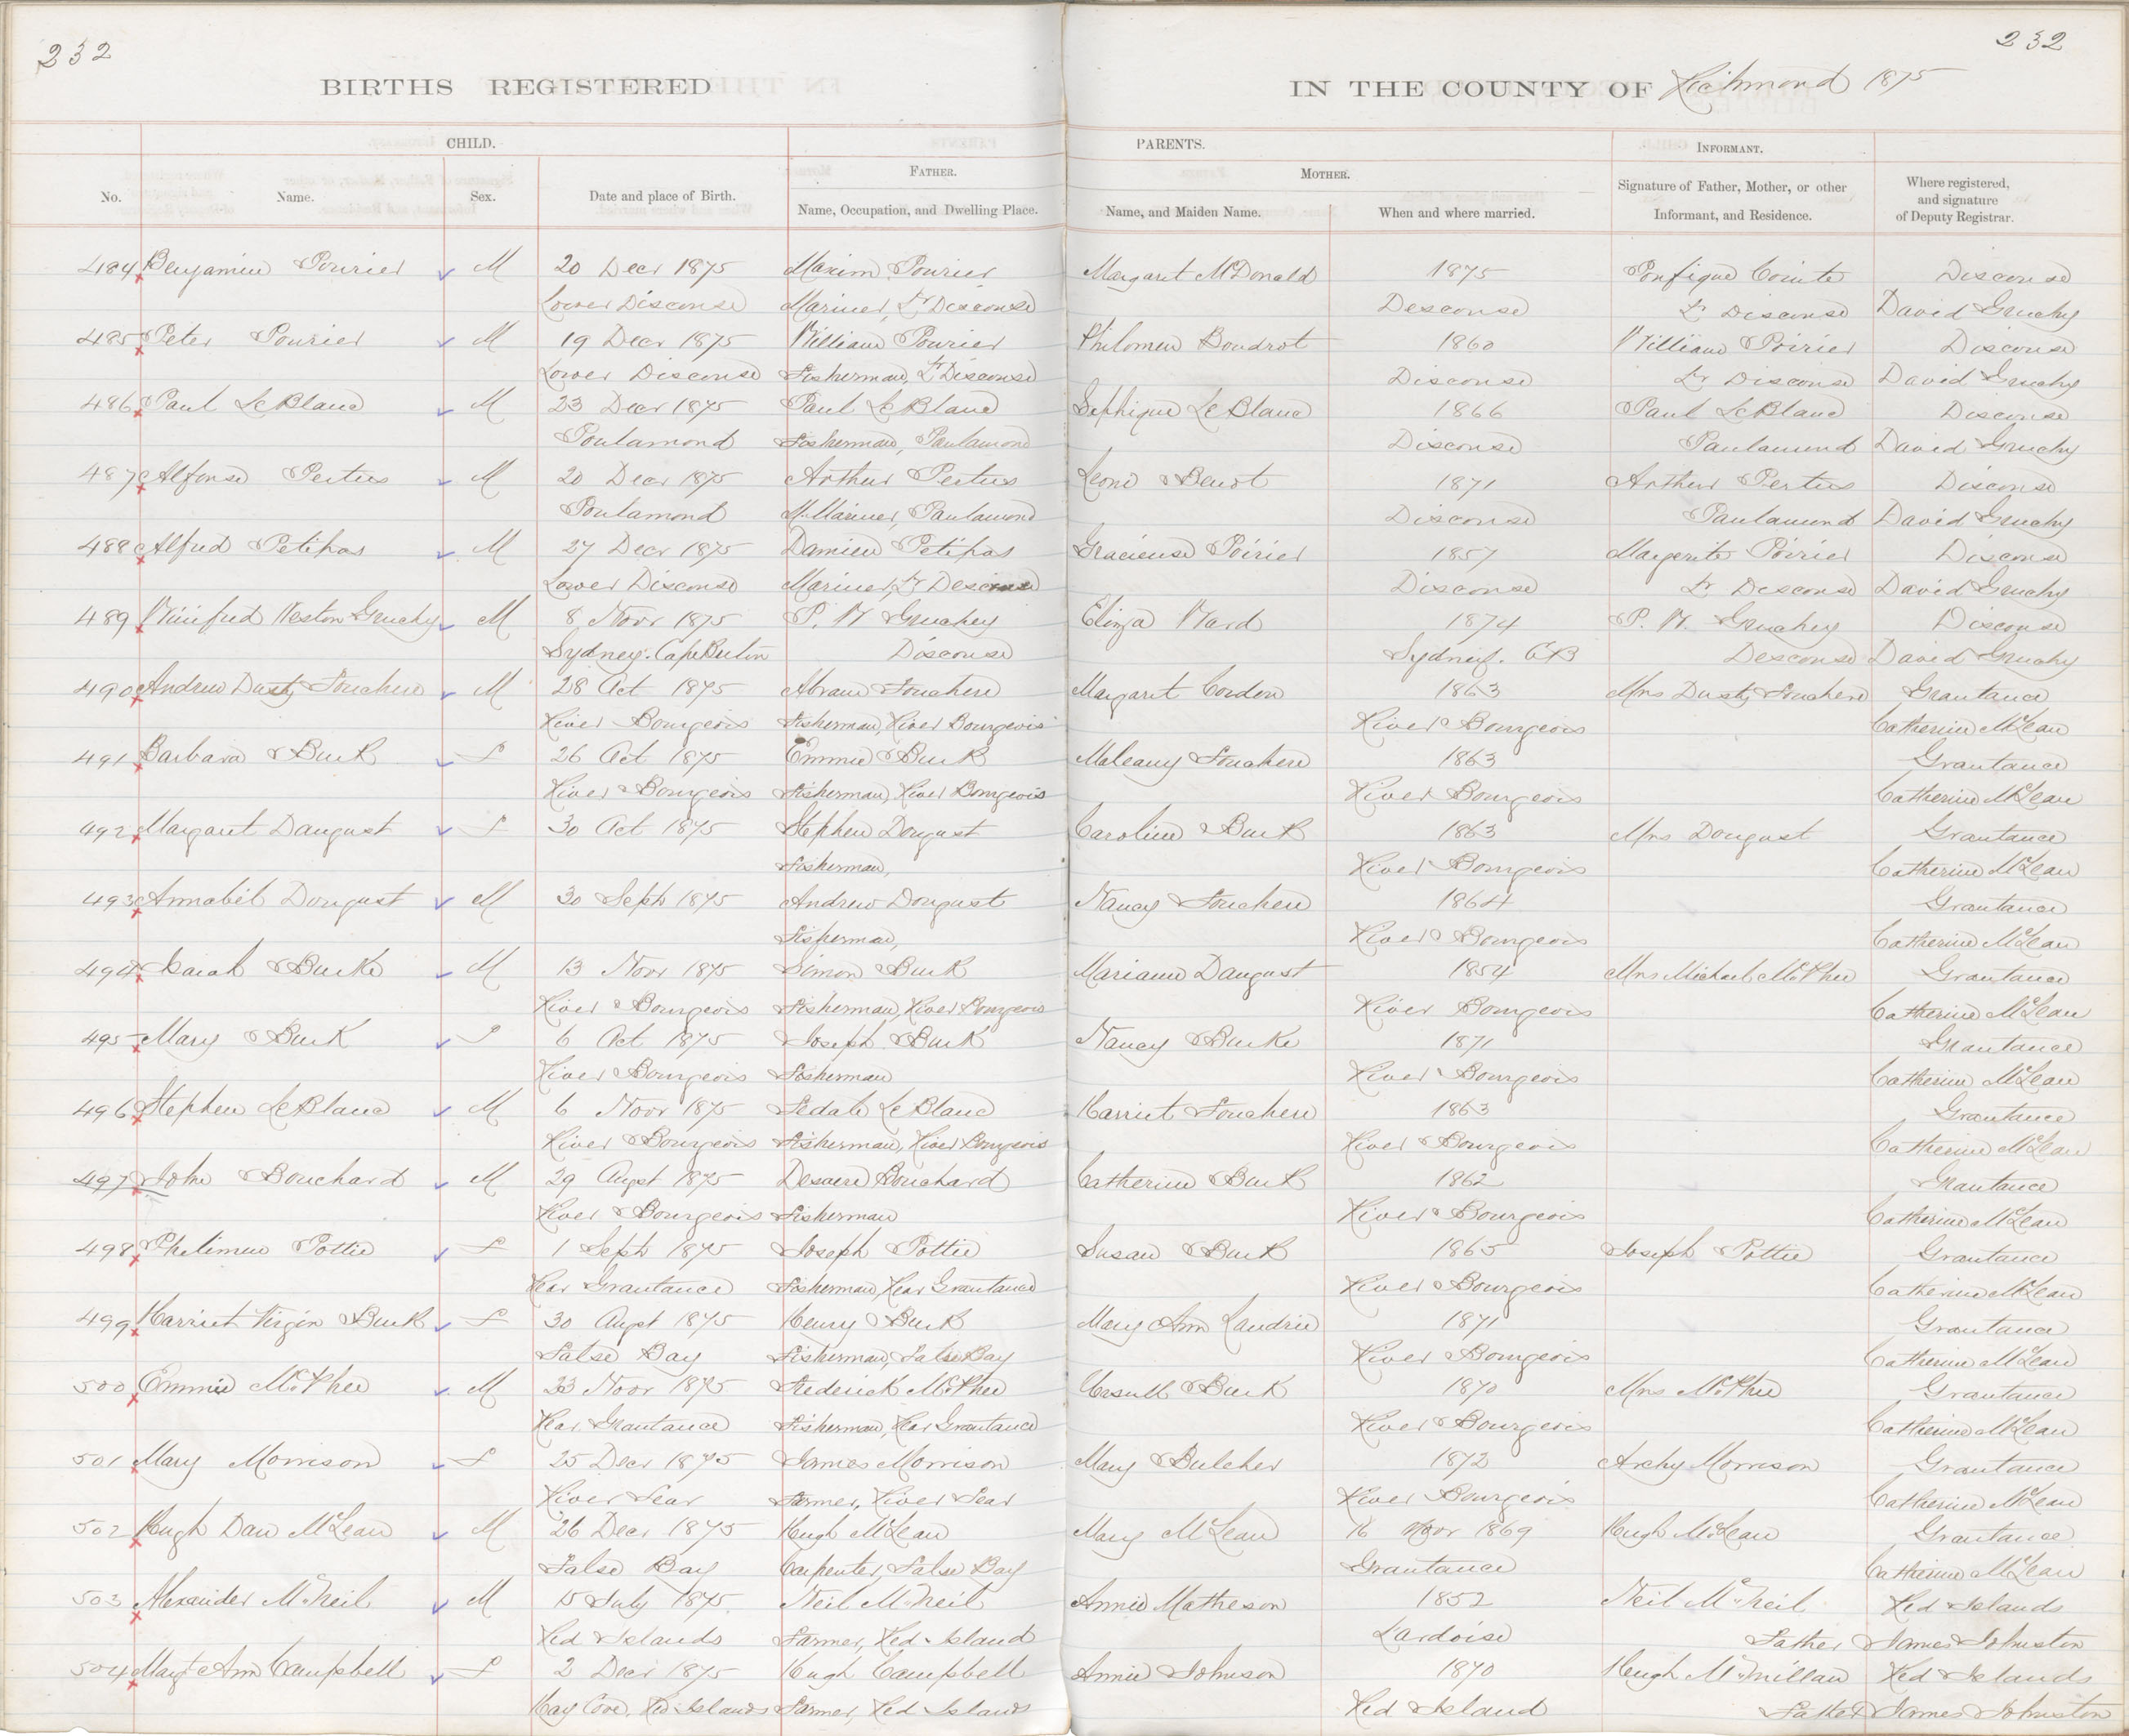 232
232
BIRTHS REGISTERED
IN THE COUNTY OF Richmond 1875
CHILD.
PARENTS.
INFORMANT.
No.
Name.
Sex.
Date and place of Birth.
FATHER.
Name, Occupation, and Dwelling Place.
MOTHER.
Name, and Maiden Name.
When and where married.
Signature of Father, Mother, or other
Informant, and Residence.
Where registered,
and signature
of Deputy Registrar.
484 Benjamin Pourier M 20 Decr 1875 Maxim Pourier Margaret McDonald 1875 Ponfique Cointe Discouse
Lower Discouse Mariner, Lr Discouse Descouse Lr Discouse David Gruchy
485 Peter Pourier M 19 Decr 1875 William Pourier Philomen Boudrot 1860 William Poirier Discouse
Lower Discouse Fisherman, Lr Discouse Discouse Lr Discouse David Gruchy
486 Paul LeBlanc M 23 Decr 1875 Paul LeBlanc Sephique LeBlanc 1866 Paul LeBlanc Discouse
Poulamond Fisherman, Paulamond Discouse Paulamond David Gruchy
487 Alfonse Pertus M 20 Decr 1875 Arthur Pertus Leoni Benot 1871 Arthur Pertus Discouse
Poulamond M. Mariner, Paulamond Discouse Paulamond David Gruchy
488 Alfred Petipas M 27 Decr 1875 Damien Petipas Gracieuse Poirier 1857 Margerite Poirier Discouse
Lower Discouse Mariner, Lr Descouse Discouse Lr Descouse David Gruchy
489 Winifred Weston Gruchy M 8 Novr 1875 P. W Gruchey Eliza Ward 1874 P. W. Gruchey Discouse
Sydney. Cape Breton Discouse Sydney. CB Descouse David Gruchy
490 Andrew Dusty Fouchere M 28 Oct 1875 Abram Fouchere Margaret Cordon 1863 Mrs Dusty Fouchere Grantance
River Bourgeois Fisherman, River Bourgeois River Bourgeois Catherine McLean
491 Barbara Burk F 26 Oct 1875 Emmie Burk Meleany Fouchere 1863 Grantance
River Bourgeois Fisherman, River Bourgeois River Bourgeois Catherine McLean
492 Margaret Daugust F 30 Oct 1875 Stephen Dougust Caroline Burk 1863 Mrs Dougust Grantance
Fisherman, River Bourgeois Catherine McLean
493 Annabel Dougust M 30 Sept 1875 Andrew Dougust Nancy Fouchere 1864 Grantance
Fisherman, River Bourgeois Catherine McLean
494 Isaiah Burke M 13 Novr 1875 Simon Burk Mariann Daugust 1854 Mrs Michael McPhee Grantance
River Bourgeois Fisherman, River Bourgeois River Bourgeois Catherine McLean
495 Mary Burk F 6 Oct 1875 Joseph Burk Nancy Burke 1871 Grantance
River Bourgeois Fisherman River Bourgeois Catherine McLean
496 Stephen LeBlanc M 6 Novr 1875 Sedate LeBlanc Harriet Fouchere 1863 Grantance
River Bourgeois Fisherman, River Bourgeois River Bourgeois Catherine McLean
497 John Bouchard M 29 Augst 1875 Desaere Bouchard Catherine Burk 1862 Grantance
River Bourgeois Fisherman River Bourgeois Catherine McLean
498 Philimen Pottie F 1 Sept 1875 Joseph Pottie Susan Burk 1865 Joseph Pottie Grantance
Rear Grantance Fisherman, Rear Grantance River Bourgeois Catherine McLean
499 Harriet Virgin Burk F 30 Augt 1875 Henry Burk Mary Ann Landrie 1871 Grantance
False Bay Fisherman, False Bay River Bourgeois Catherine McLean
500 Emmie McPhee M 23 Novr 1875 Frederick McPhee Ursull Burk 1870 Mrs McPhee Grantance
Rear Grantance Fisherman, Rear Grantance River Bourgeois Catherine McLean
501 Mary Morrison F 25 Decr 1875 James Morrison Mary Bulcher 1872 Archy Morrison Grantance
River Tear Farmer, River Tear River Bourgeois Catherine McLean
502 Hugh Dan McLean M 26 Decr 1875 Hugh McLean Mary McLean 16 Novr 1869 Hugh McLean Grantance
False Bay Carpenter, False Bay Grantance Catherine McLean
503 Alexander McNeil M 15 July 1875 Neil McNeil Annie Matheson 1852 Neil McNeil Red Islands
Red Islands Farmer, Red Island Lardoise Father James Johnston
504 Margt Ann Campbell F 2 Decr 1875 Hugh Campbell Annie Johnson 1870 Hugh McMillan Red Islands
Hay Cove, Red Islands Farmer, Red Islands Red Island Father James Johnston